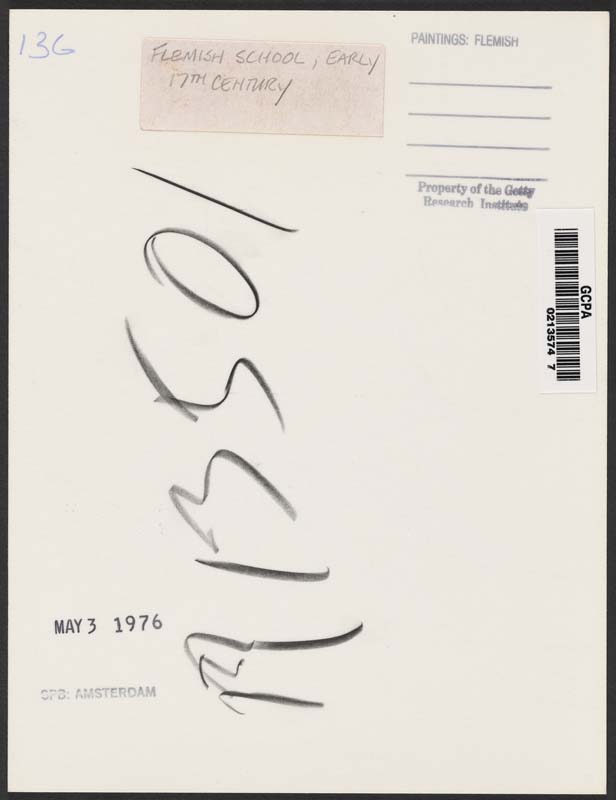 136
FLEMISH SCHOOL, EARLY
17TH CENTURY
PAINTINGS: FLEMISH
Property of the Getty
Research Institute
GCPA
0213574 7
MAY 3 1976
SPB: AMSTERDAM